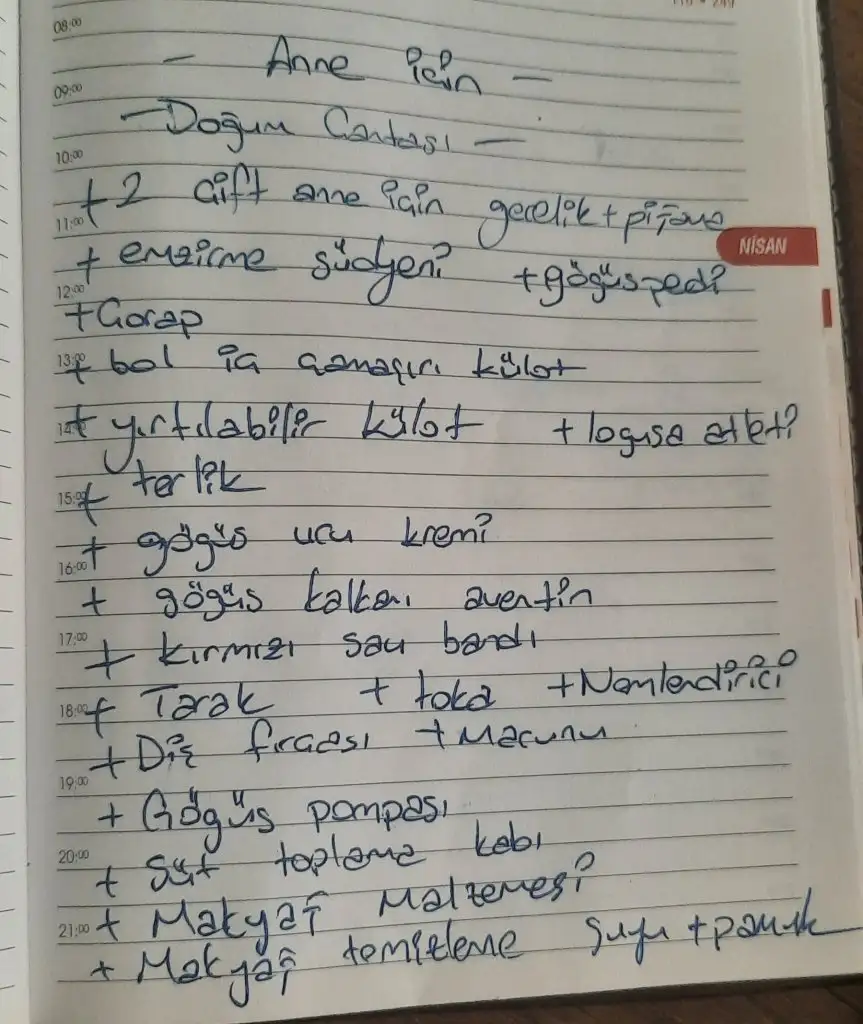 08:00
- Anne için -
09:00
- Doğum Çantası -
10:00
+ 2 çift anne için gecelik + pijama
11:00
NİSAN
+ emzirme südyeni + göğüs pedi
12:00
+ Çorap
13:00 + bol iç çamaşırı külot
+ yırtılabilir külot + logusa atleti
15:00 + terlik
+ göğüs ucu kremi
16:00
+ göğüs kalkanı aventin
17:00
+ kırmızı saç bandı
18:00 + Tarak + toka + Nemlendirici
+ Diş fırçası + Macunu
19:00
+ Göğüs pompası
20:00
+ Süt toplama kabı
21:00 + Makyaj Malzemesi
+ Makyaj temizleme suyu + pamuk